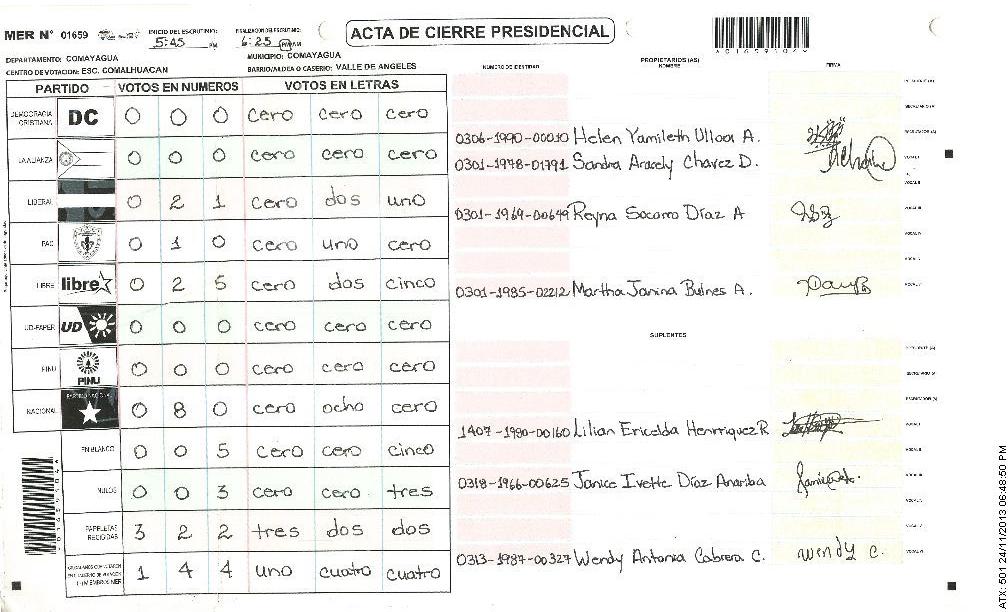 MER N° 01659
INICIO DEL ESCRUTINIO:
5:45 PM
FINALIZACION DEL ESCRUTINIO:
6:25 PM AM
ACTA DE CIERRE PRESIDENCIAL
DEPARTAMENTO: COMAYAGUA
MUNICIPIO: COMAYAGUA
CENTRO DE VOTACION: ESC. COMALHUACAN
BARRIO/ALDEA O CASERIO: VALLE DE ANGELES
PARTIDO VOTOS EN NUMEROS VOTOS EN LETRAS
DEMOCRACIA CRISTIANA DC 0 0 0 cero cero cero
LA ALIANZA 0 0 0 cero cero cero
LIBERAL 0 2 1 cero dos uno
PAC 0 1 0 cero uno cero
LIBRE libre 0 2 5 cero dos cinco
UD-FAPER UD 0 0 0 cero cero cero
PINU PINU 0 0 0 cero cero cero
NACIONAL PARTIDO NACIONAL 0 8 0 cero ocho cero
EN BLANCO 0 0 5 cero cero cinco
NULOS 0 0 3 cero cero tres
PAPELETAS RECIBIDAS 3 2 2 tres dos dos
1 4 4 uno cuatro cuatro
NUMERO DE IDENTIDAD
PROPIETARIOS (AS)
NOMBRE
FIRMA
0306-1990-00010 Helen Yamileth Ulloa A.
0301-1978-01791 Sandra Aracely Chavez D.
0301-1969-00649 Reyna Socorro Díaz A
0301-1985-02212 Martha Janina Bulnes A.
SUPLENTES
1407-1980-00160 Lilian Ericelda Henrriquez R
0318-1966-00625 Janice Ivette Díaz Anariba
0313-1987-00327 Wendy Antonia Cabrera C.
wendy c.
ATX: 501 24/11/2013 06:48:50 PM